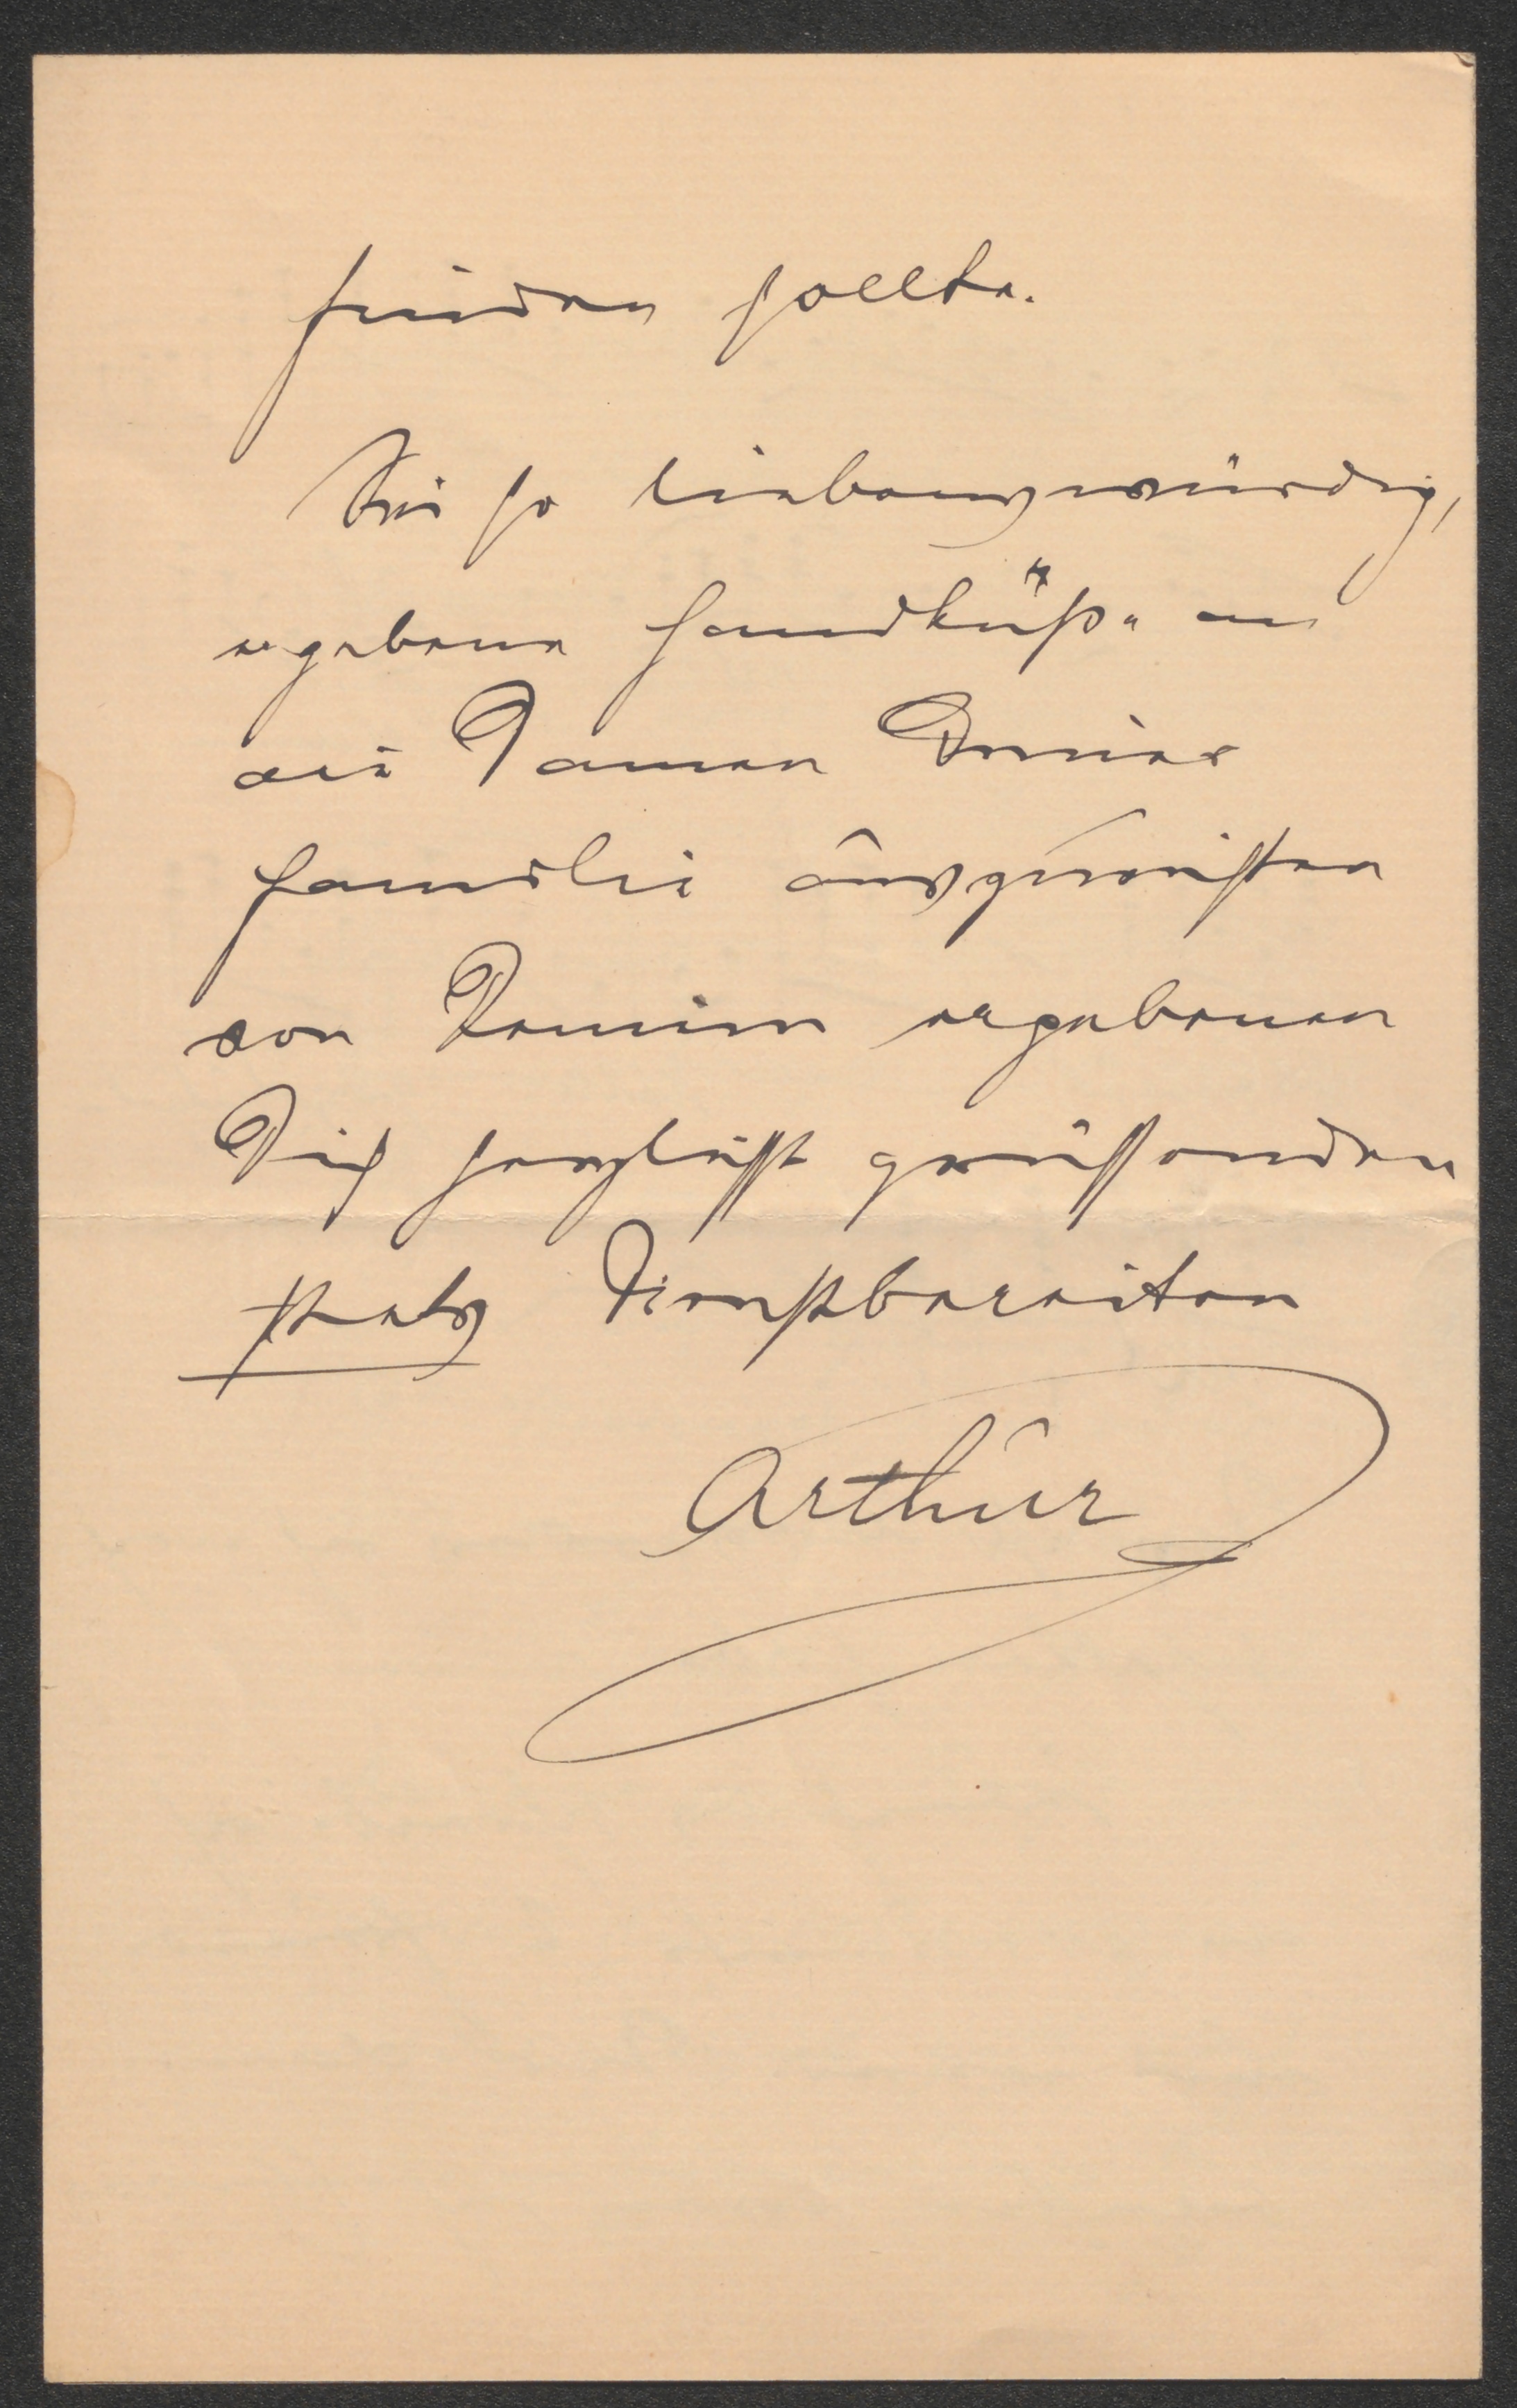 finden sollte.
Sei so liebenswürdig,
ergebene Handküsse an
die Damen Deiner
Familie auszurichten
von Deinem ergebenen
Dich herzlichst grüssenden
stets dienstbereiten
Arthur